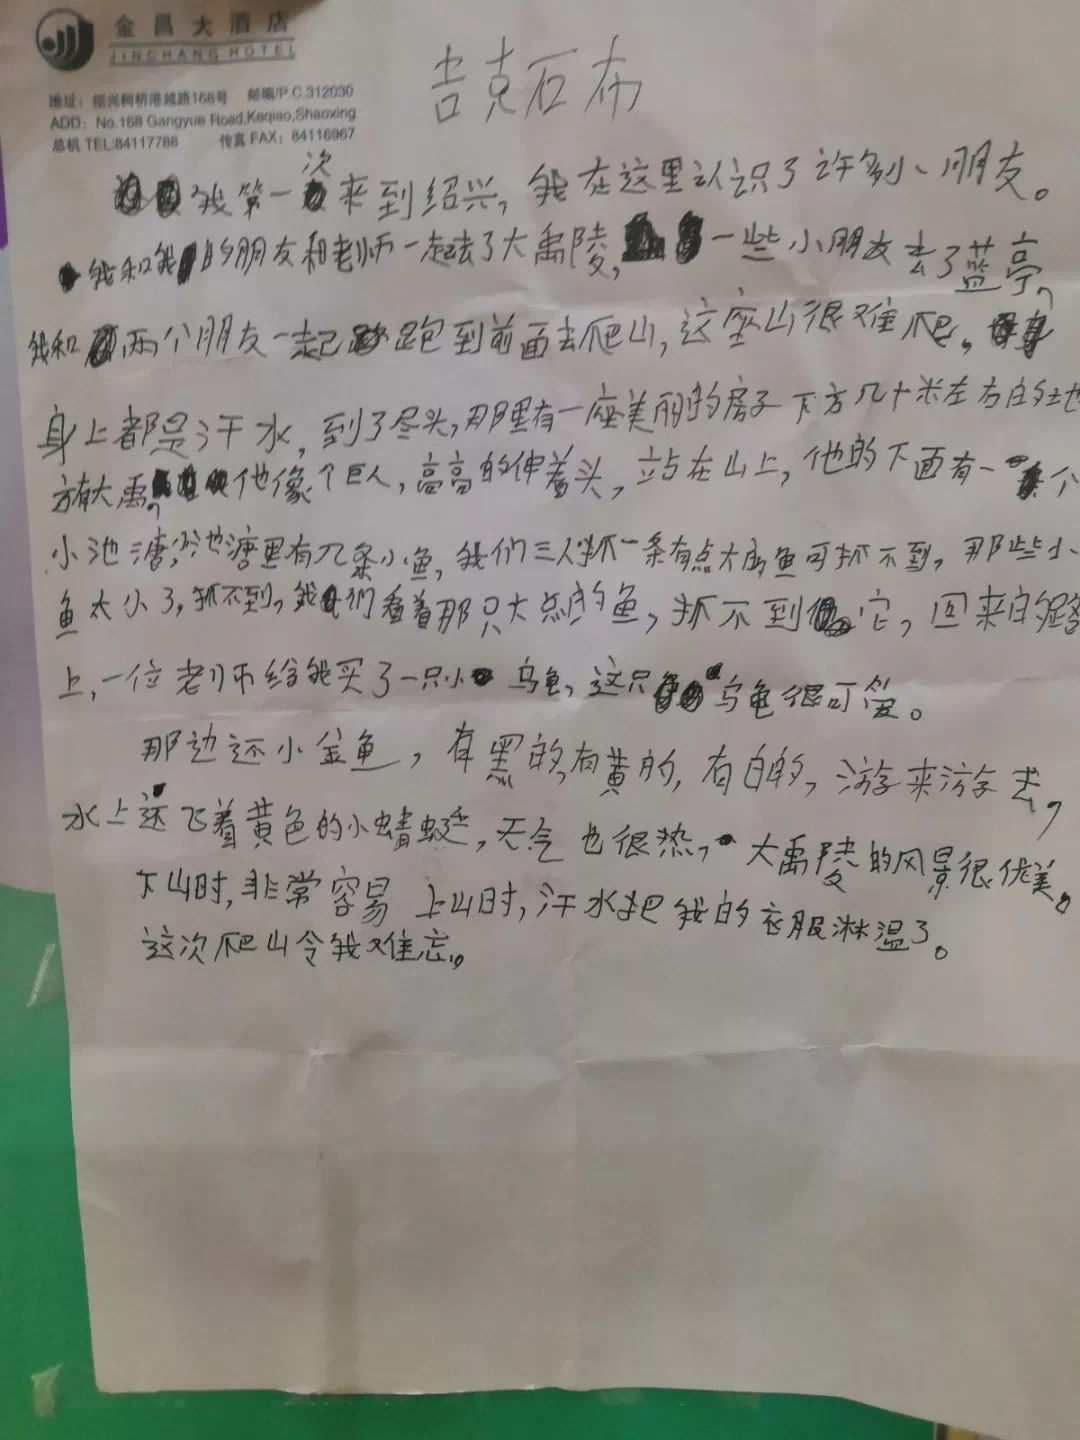 金昌大酒店
JINCHANG HOTEL
地址：绍兴柯桥港越路168号 邮编/P.C.312030
ADD：No.168 Gangyue Road,Keqiao,Shaoxing
总机 TEL:84117788 传真 FAX：84116967
吉克石布
我第一次来到绍兴，我在这里认识了许多小朋友。
我和我的朋友和老师一起去了大禹陵，一些小朋友去了蓝亭，
我和两个朋友一起跑到前面去爬山，这座山很难爬，
身上都是汗水，到了尽头，那里有一座美丽的房子下方几十米左右的地
方有大禹，他像个巨人，高高的伸着头，站在山上，他的下面有一个
小池溏，池溏里有几条小鱼，我们三人抓一条有点大的鱼可抓不到，那些小
鱼太小了，抓不到，我们看着那只大点的鱼，抓不到它，回来的路
上，一位老师给我买了一只小乌龟，这只乌龟很可爱。
那边还小金鱼，有黑的，有黄的，有白的，游来游去，
水上还飞着黄色的小蜻蜓，天气也很热，大禹陵的风景很优美。
下山时，非常容易上山时，汗水把我的衣服淋湿了。
这次爬山令我难忘。